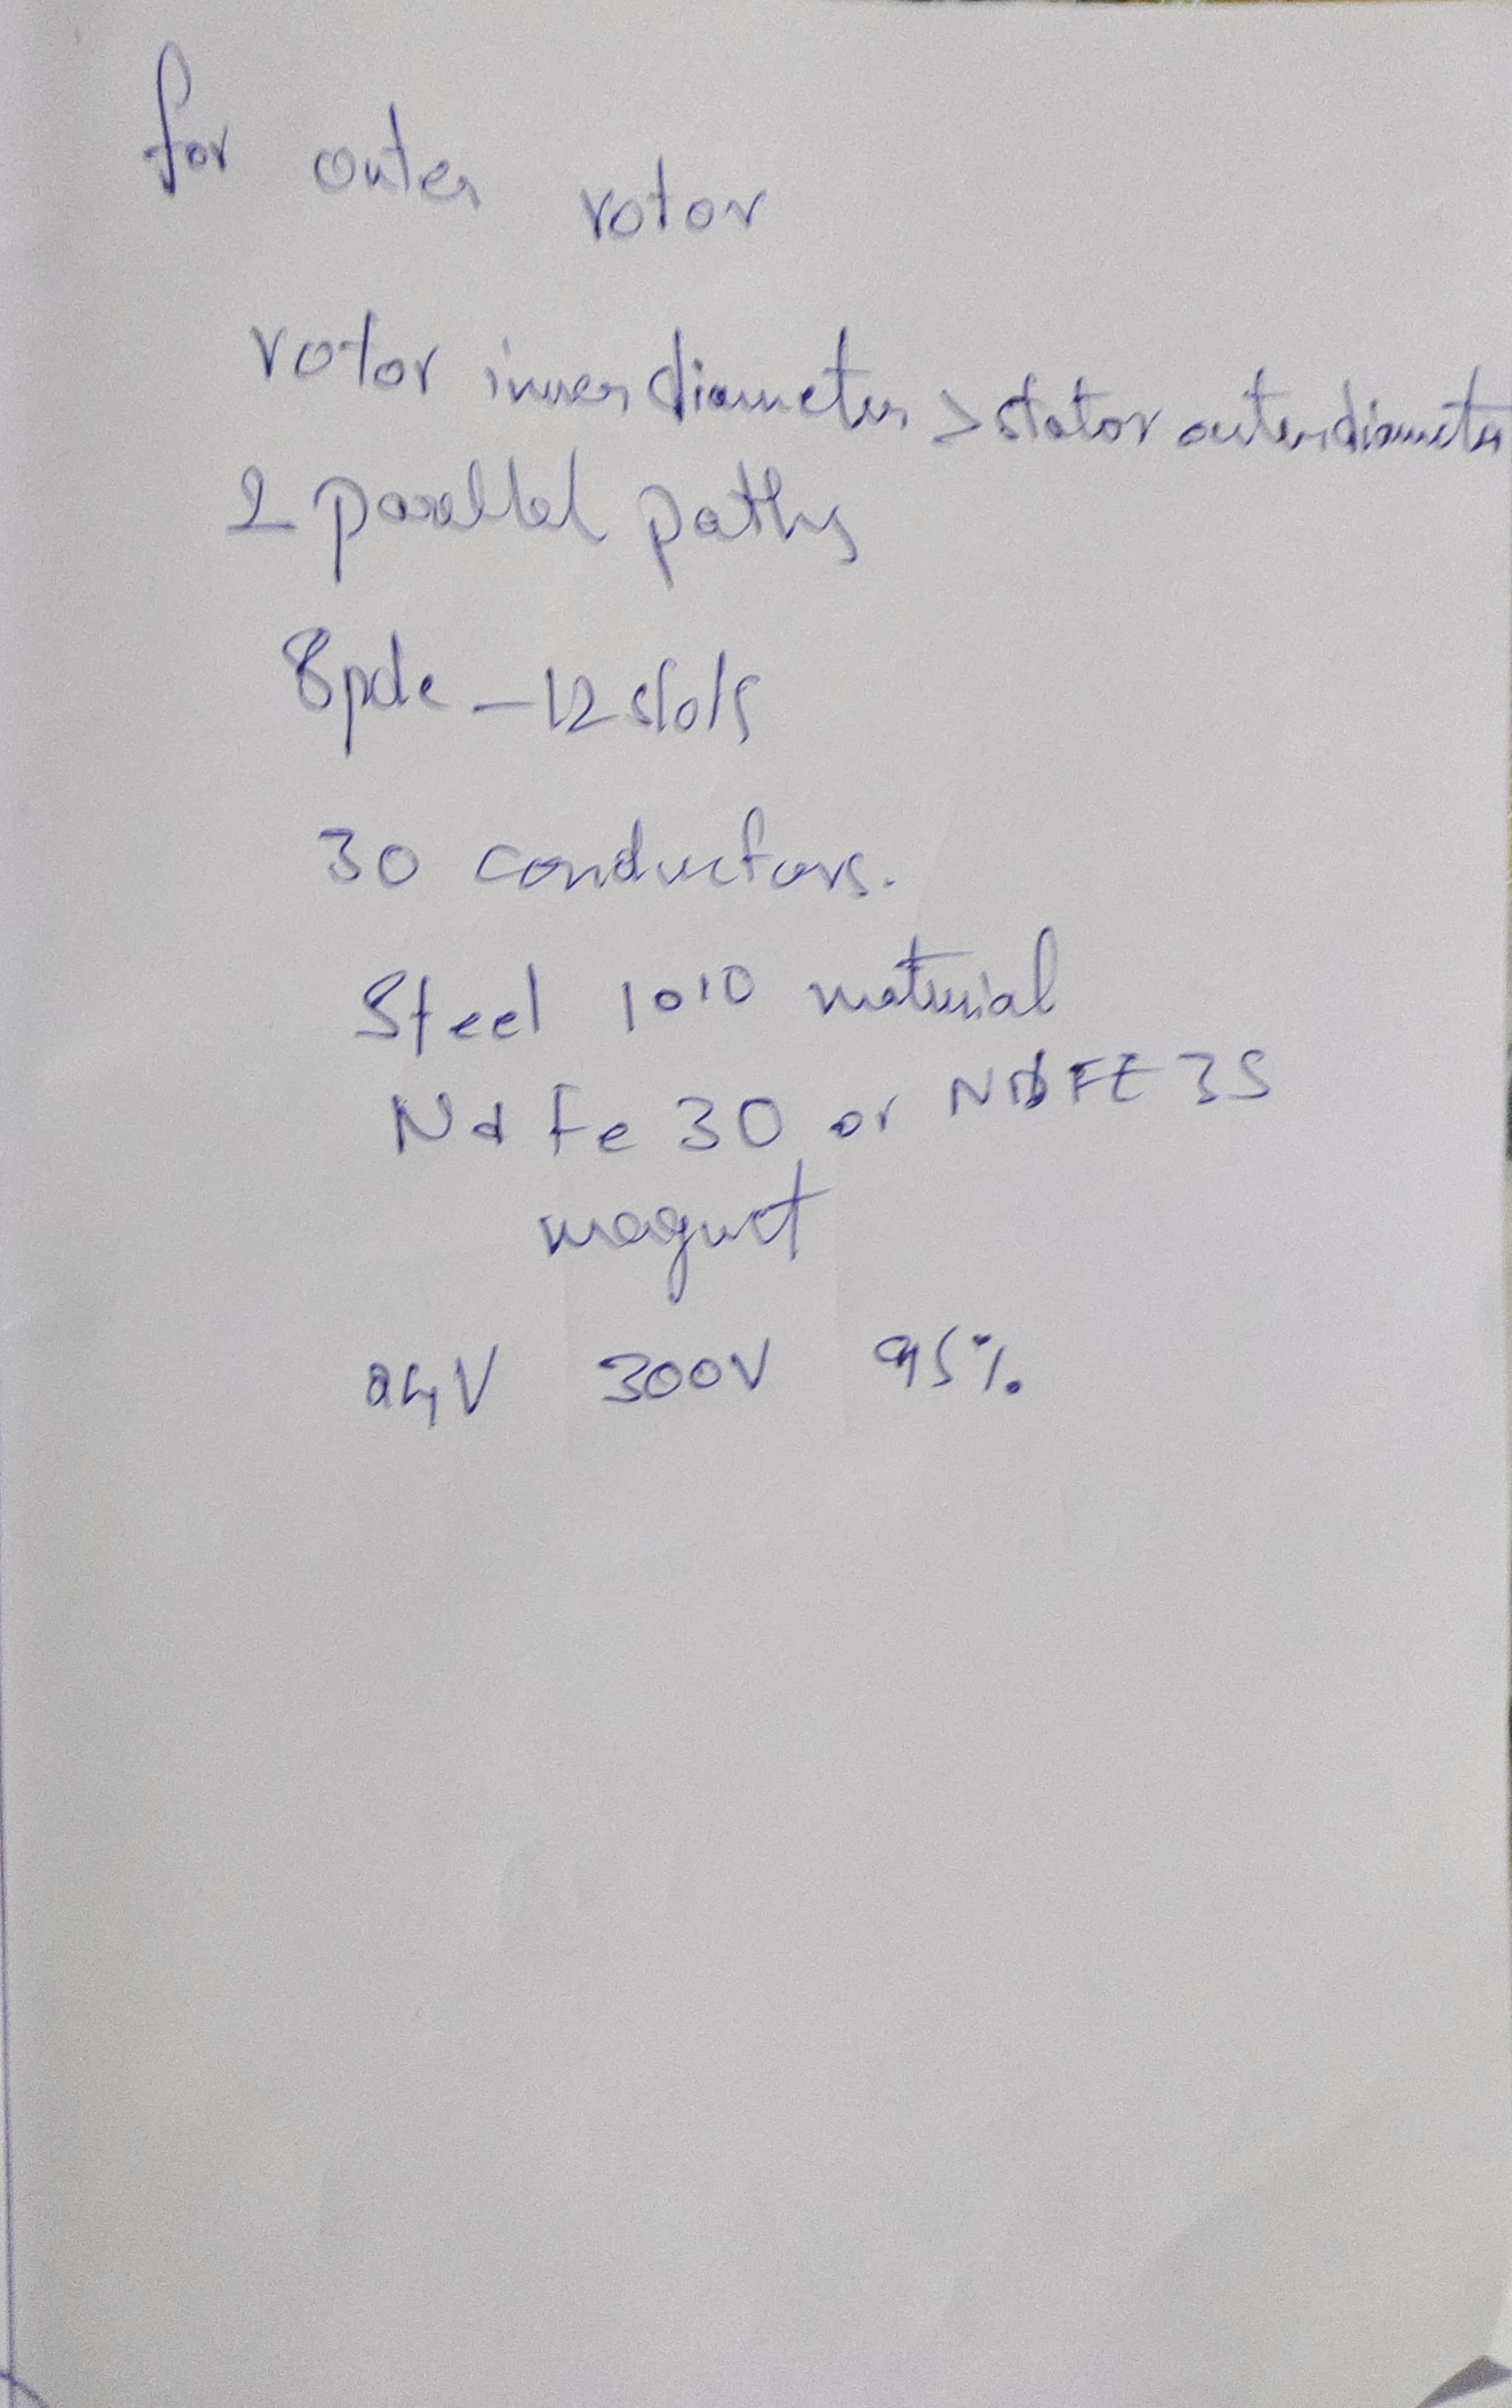 for outer rotor
rotor inner diameter > stator outer diameter
2 parallel paths
8 pole - 12 slots
30 conductors.
Steel 1010 material
Nd Fe 30 or NdFE 35
magnet
24V 300V 95%